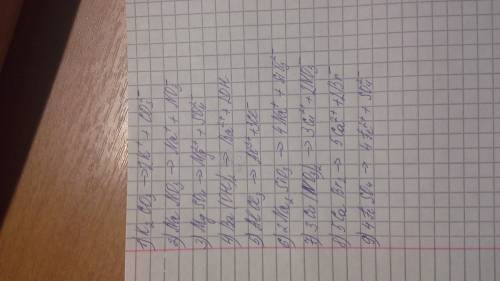 1) K₂CO₃ → 2K⁺ + CO₃²⁻
2) NaNO₃ → Na⁺ + NO₃⁻
3) MgSO₄ → Mg²⁺ + SO₄²⁻
4) Ba(OH)₂ → Ba²⁺ + 2OH⁻
5) AlCl₃ → Al³⁺ + 3Cl⁻
6) 2Na₂SiO₃ → 4Na⁺ + SiO₃²⁻
7) 3Cu(NO₃)₂ → 3Cu²⁺ + 2NO₃⁻
8) 5CaBr → 5Ca²⁺ + 2Br⁻
9) 4FeSO₄ → 4Fe²⁺ + SO₄²⁻